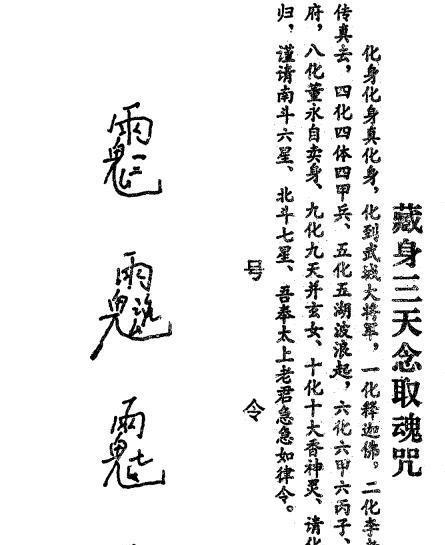 藏身三天念取魂咒
化身化身真化身，化到武城大将军，一化释迦佛。二化李
传真去，四化四体四甲兵、五化五湖波浪起，六化六甲六丙子、
府，八化董永自卖身、九化九天并玄女、十化十大香神灵、请化
归，谨请南斗六星、北斗七星、吾奉太上老君急急如律令。
号令